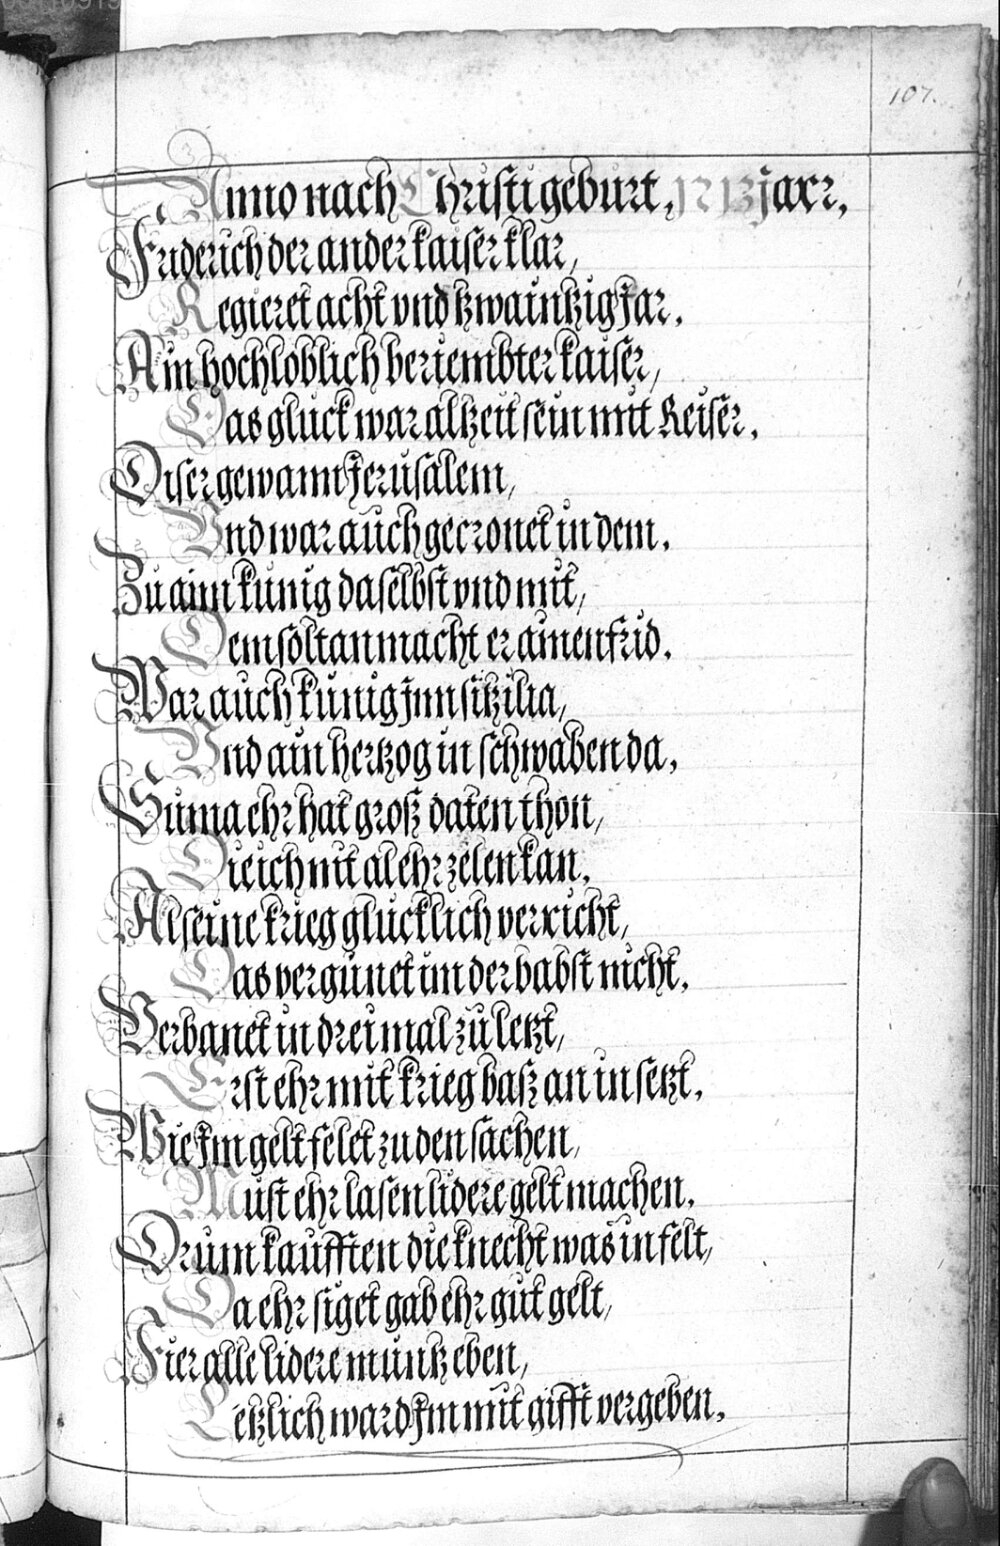 107.
Anno nach Christi geburt, 1213 Jaxr,
Friderich der ander kaiser klar,
Regieret acht vnd tzwaintzig Jar.
Ain hochloblich beriembter kaiser,
Das gluck war altzeit sein mit Reiser.
Diser gewann Jerusalem,
Vnd war auch gecronet in dem.
Zu aim kunig daselbst vnd mit,
Dem soltan macht er ainen frid.
War auch kunig Jnn sitzilia,
Vnd ain hertzog in schwaben da,
Suma ehr hat groß daten thon,
Die ich nit al ehrzelen kan.
Al seine krieg glucklich verricht,
Das vergunet im der babst nicht.
Verbanet in dreimal zu letzt,
Erst ehr mit krieg baß an in setzt.
Wie Jm gelt felet zu den sachen,
Must ehr lasen lidere gelt machen.
Drum kaufften die knecht was in felt,
Da ehr siget gab ehr gut gelt,
Fier alle lidere muntz eben,
Letzlich ward Jm mit gifft vergeben.